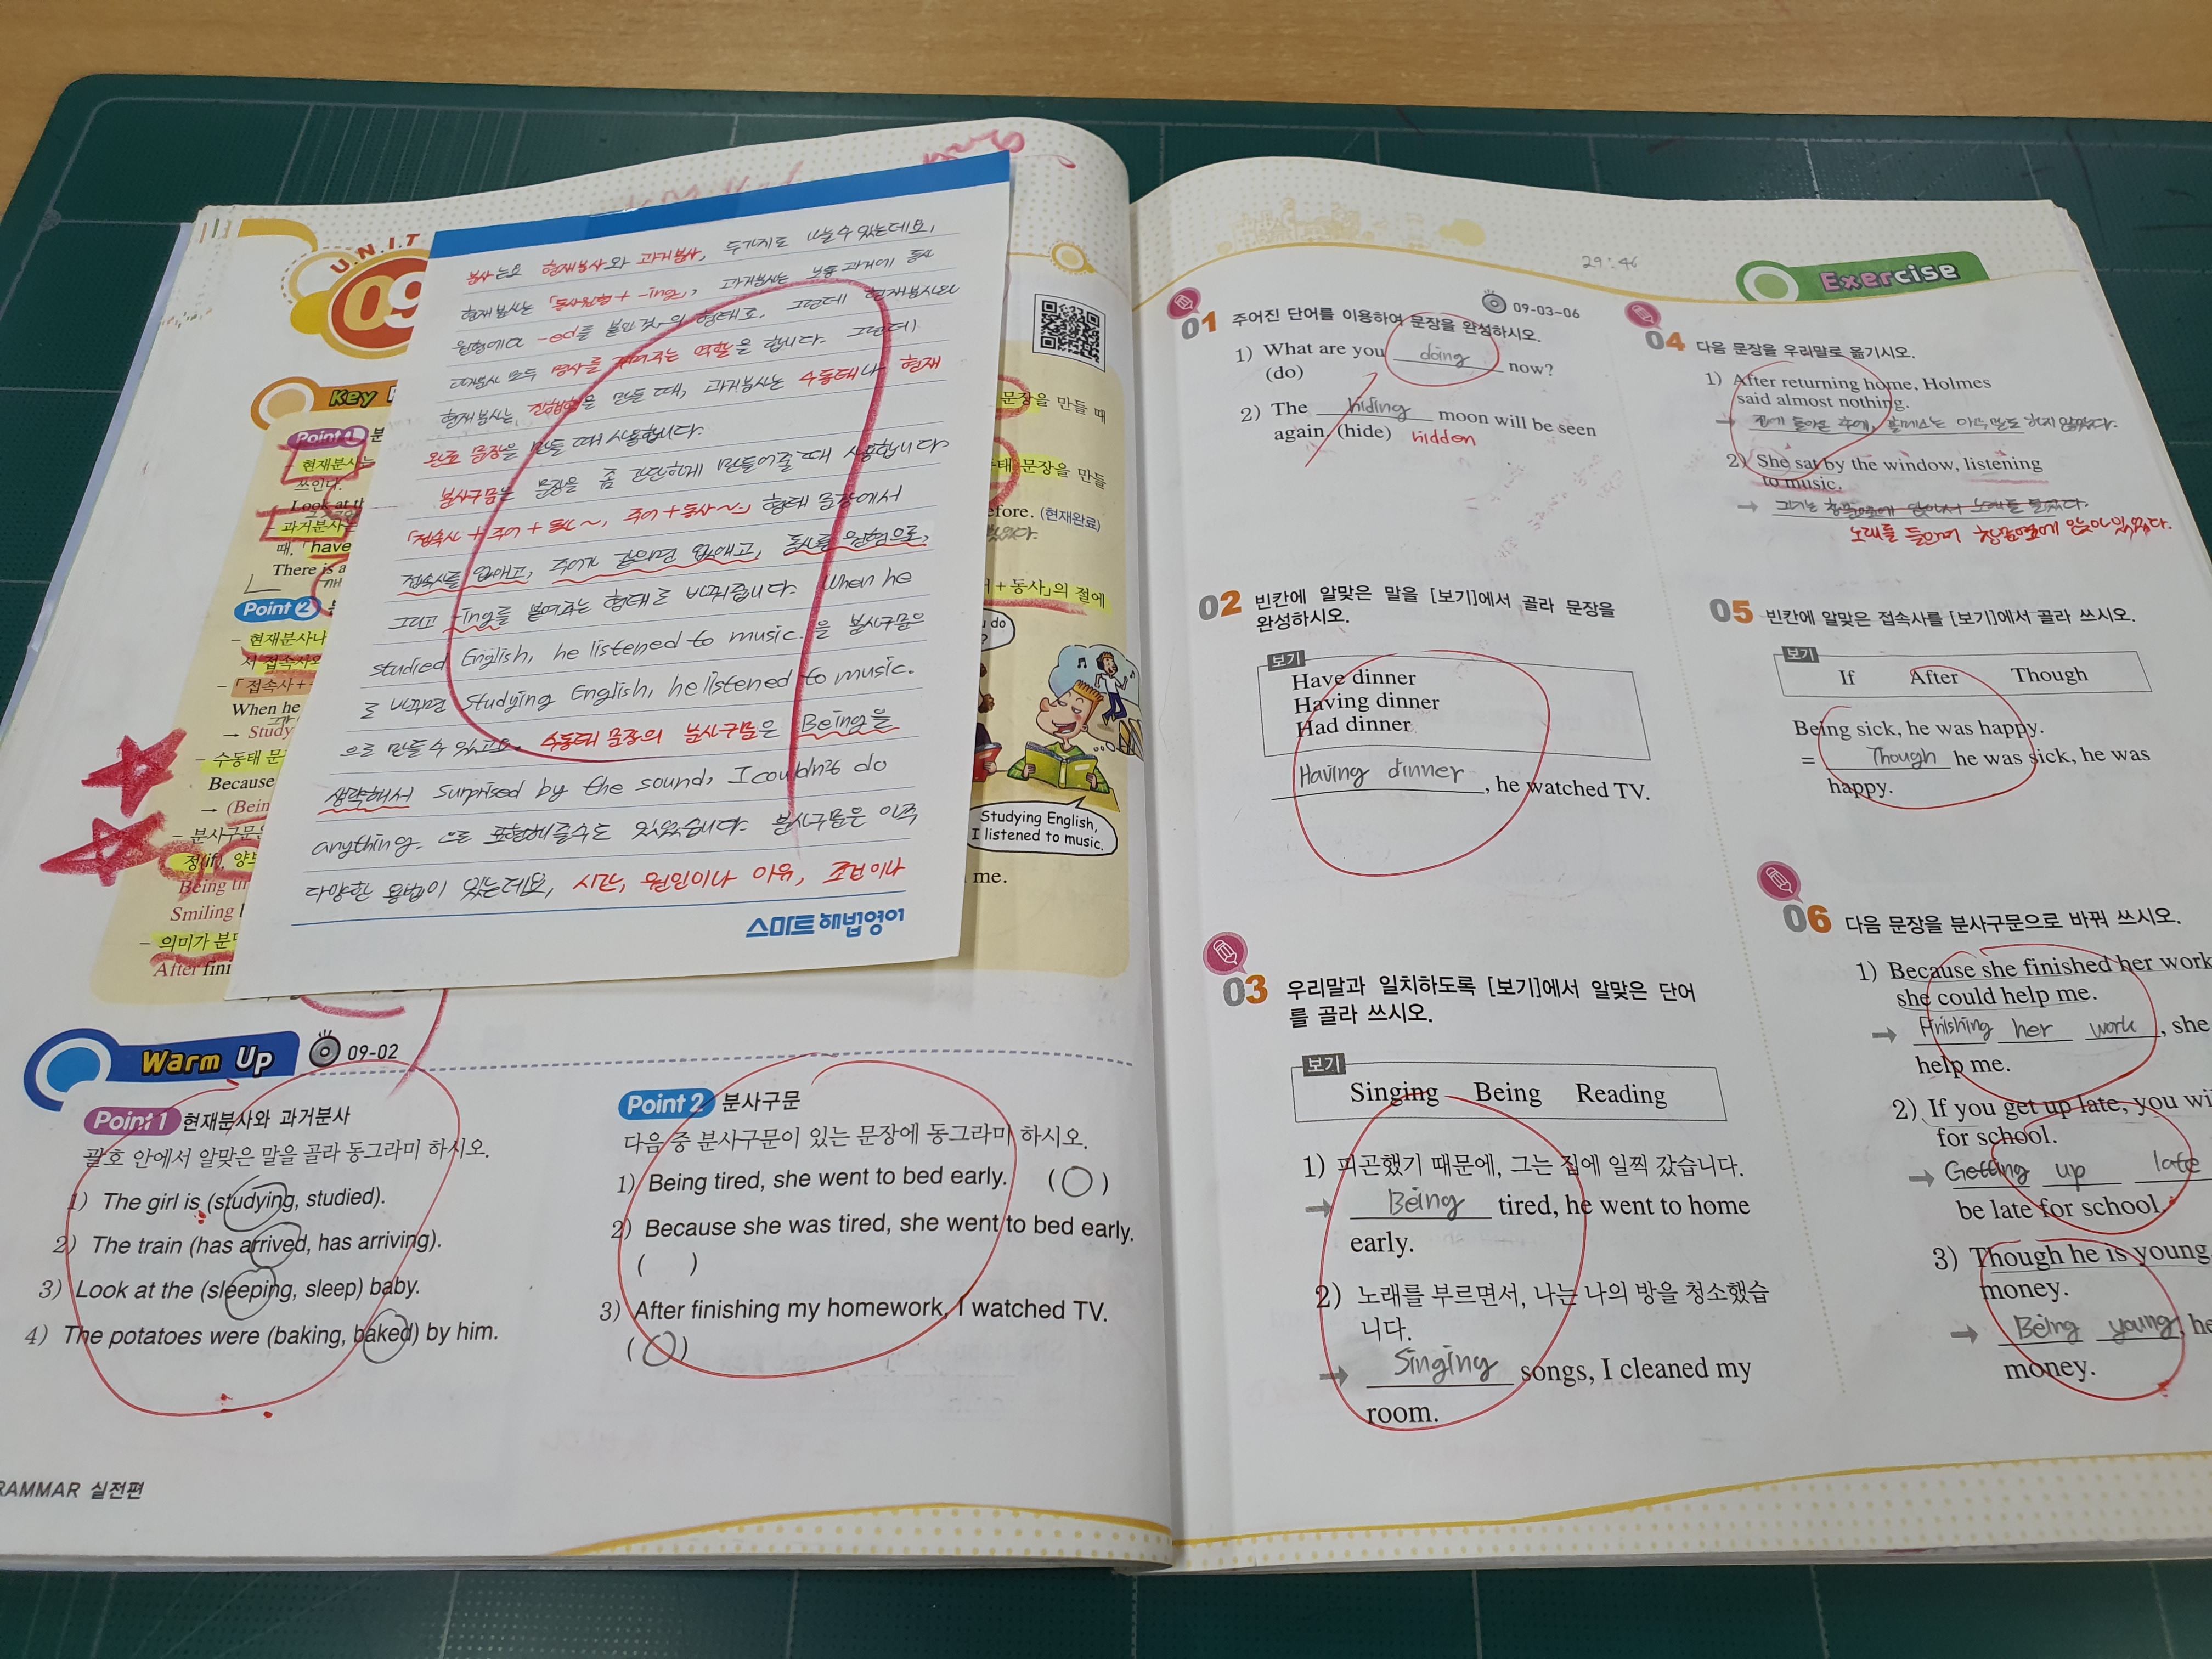 U.N.I.T
09
Key
Point 1 분
- 현재분사는
쓰인다.
Look at th
- 과거분사는
때, 「have
There is a
Point 2
- 현재분사나
서 접속사와
- 「접속사+
When he
→ Study
- 수동태 문
Because
→ (Bein
- 분사구문은
정(if), 양보
Being tir
Smiling
- 의미가 분
After fini
분사는요 현재분사와 과거분사, 두가지로 나눌수 있는데요,
현재분사는 「동사원형 + -ing」, 과거분사는 보통 과거에 동사
원형에다 -ed를 붙인 것의 형태로. 그런데 현재분사와
과거분사 모두 명사를 꾸며주는 역할을 합니다. 그런데
현재분사는, 진행형을 만들 때, 과거분사는 수동태나 현재
완료 문장을 만들 때 사용합니다.
분사구문은 문장을 좀 간단하게 만들어줄 때 사용합니다.
「접속사 + 주어 + 동사 ~, 주어 + 동사 ~.」 형태 문장에서
접속사를 없애고, 주어가 같으면 없애고, 동사를 원형으로,
그리고 -ing를 붙여주는 형태로 바꿔줍니다. When he
studied English, he listened to music. 을 분사구문으
로 바꾸면 Studying English, he listened to music.
으로 만들 수 있고요. 수동태 문장의 분사구문은 Being을
생략해서 Surprised by the sound, I couldn't do
anything. 으로 표현해줄수도 있었습니다. 분사구문은 아주
다양한 용법이 있는데요, 시간, 원인이나 이유, 조건이나
스마트 해법영어
문장을 만들 때
태 문장을 만들
efore. (현재완료)
+ 동사」의 절에
u do
?
Studying English,
I listened to music.
me.
Warm Up 09-02
Point 1 현재분사와 과거분사
괄호 안에서 알맞은 말을 골라 동그라미 하시오.
1) The girl is (studying, studied).
2) The train (has arrived, has arriving).
3) Look at the (sleeping, sleep) baby.
4) The potatoes were (baking, baked) by him.
Point 2 분사구문
다음 중 분사구문이 있는 문장에 동그라미 하시오.
1) Being tired, she went to bed early. (○)
2) Because she was tired, she went to bed early.
( )
3) After finishing my homework, I watched TV.
(○)
RAMMAR 실전편
29:46
Exercise
09-03-06
01 주어진 단어를 이용하여 문장을 완성하시오.
1) What are you doing now?
(do)
2) The hiding moon will be seen
again. (hide) hidden
02 빈칸에 알맞은 말을 [보기]에서 골라 문장을
완성하시오.
보기
Have dinner
Having dinner
Had dinner
Having dinner, he watched TV.
03 우리말과 일치하도록 [보기]에서 알맞은 단어
를 골라 쓰시오.
보기
Singing Being Reading
1) 피곤했기 때문에, 그는 집에 일찍 갔습니다.
→ Being tired, he went to home
early.
2) 노래를 부르면서, 나는 나의 방을 청소했습
니다.
→ Singing songs, I cleaned my
room.
04 다음 문장을 우리말로 옮기시오.
1) After returning home, Holmes
said almost nothing.
→ 집에 돌아온 후에, 홈메스는 아무 말도 하지 않았다.
2) She sat by the window, listening
to music.
→ 그녀는 창문옆에 앉아서 노래를 들었다.
노래를 들으며 창문옆에 앉아있었다.
05 빈칸에 알맞은 접속사를 [보기]에서 골라 쓰시오.
보기
If After Though
Being sick, he was happy.
= Though he was sick, he was
happy.
06 다음 문장을 분사구문으로 바꿔 쓰시오.
1) Because she finished her work
she could help me.
→ Finishing her work, she
help me.
2) If you get up late, you wi
for school.
→ Getting up late
be late for school.
3) Though he is young
money.
→ Being young, he
money.